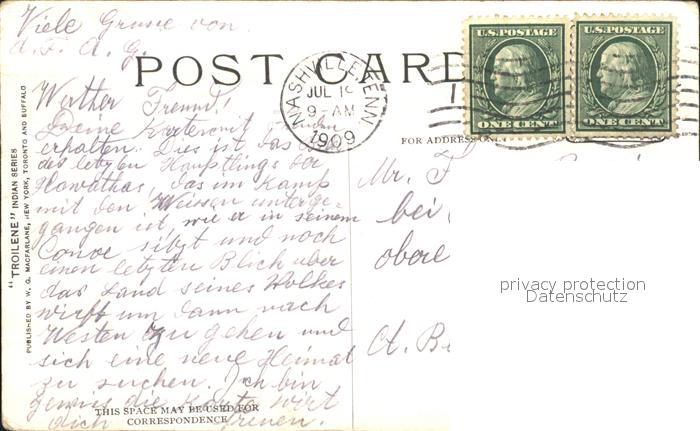 Viele Grüsse von
A. F. A. G.
POST CARD
U.S. POSTAGE
ONE CENT
U.S. POSTAGE
ONE CENT
NASHVILLE, TENN.
JUL
9-AM
1909
FOR ADDRESS ONLY
"TROILENE" INDIAN SERIES
PUBLISHED BY W. G. MACFARLANE, NEW YORK, TORONTO AND BUFFALO
Werther Freund!
Deine Karte mit
erhalten. Dies ist das
des letzten Häuptlings der
Hiawathas, das im Kampf
mit den Weissen unterge-
gangen ist, wie er in seinem
Canoe sitzt und noch
einen letzten Blick über
das Land seines Volkes
wirft um dann nach
Westen zu gehen und
sich eine neue Heimat
zu suchen. Ich bin
gewiss die Karte wirt
dich freuen.
THIS SPACE MAY BE USED FOR
CORRESPONDENCE
Mr. F
bei
obere
A. B
privacy protection
Datenschutz